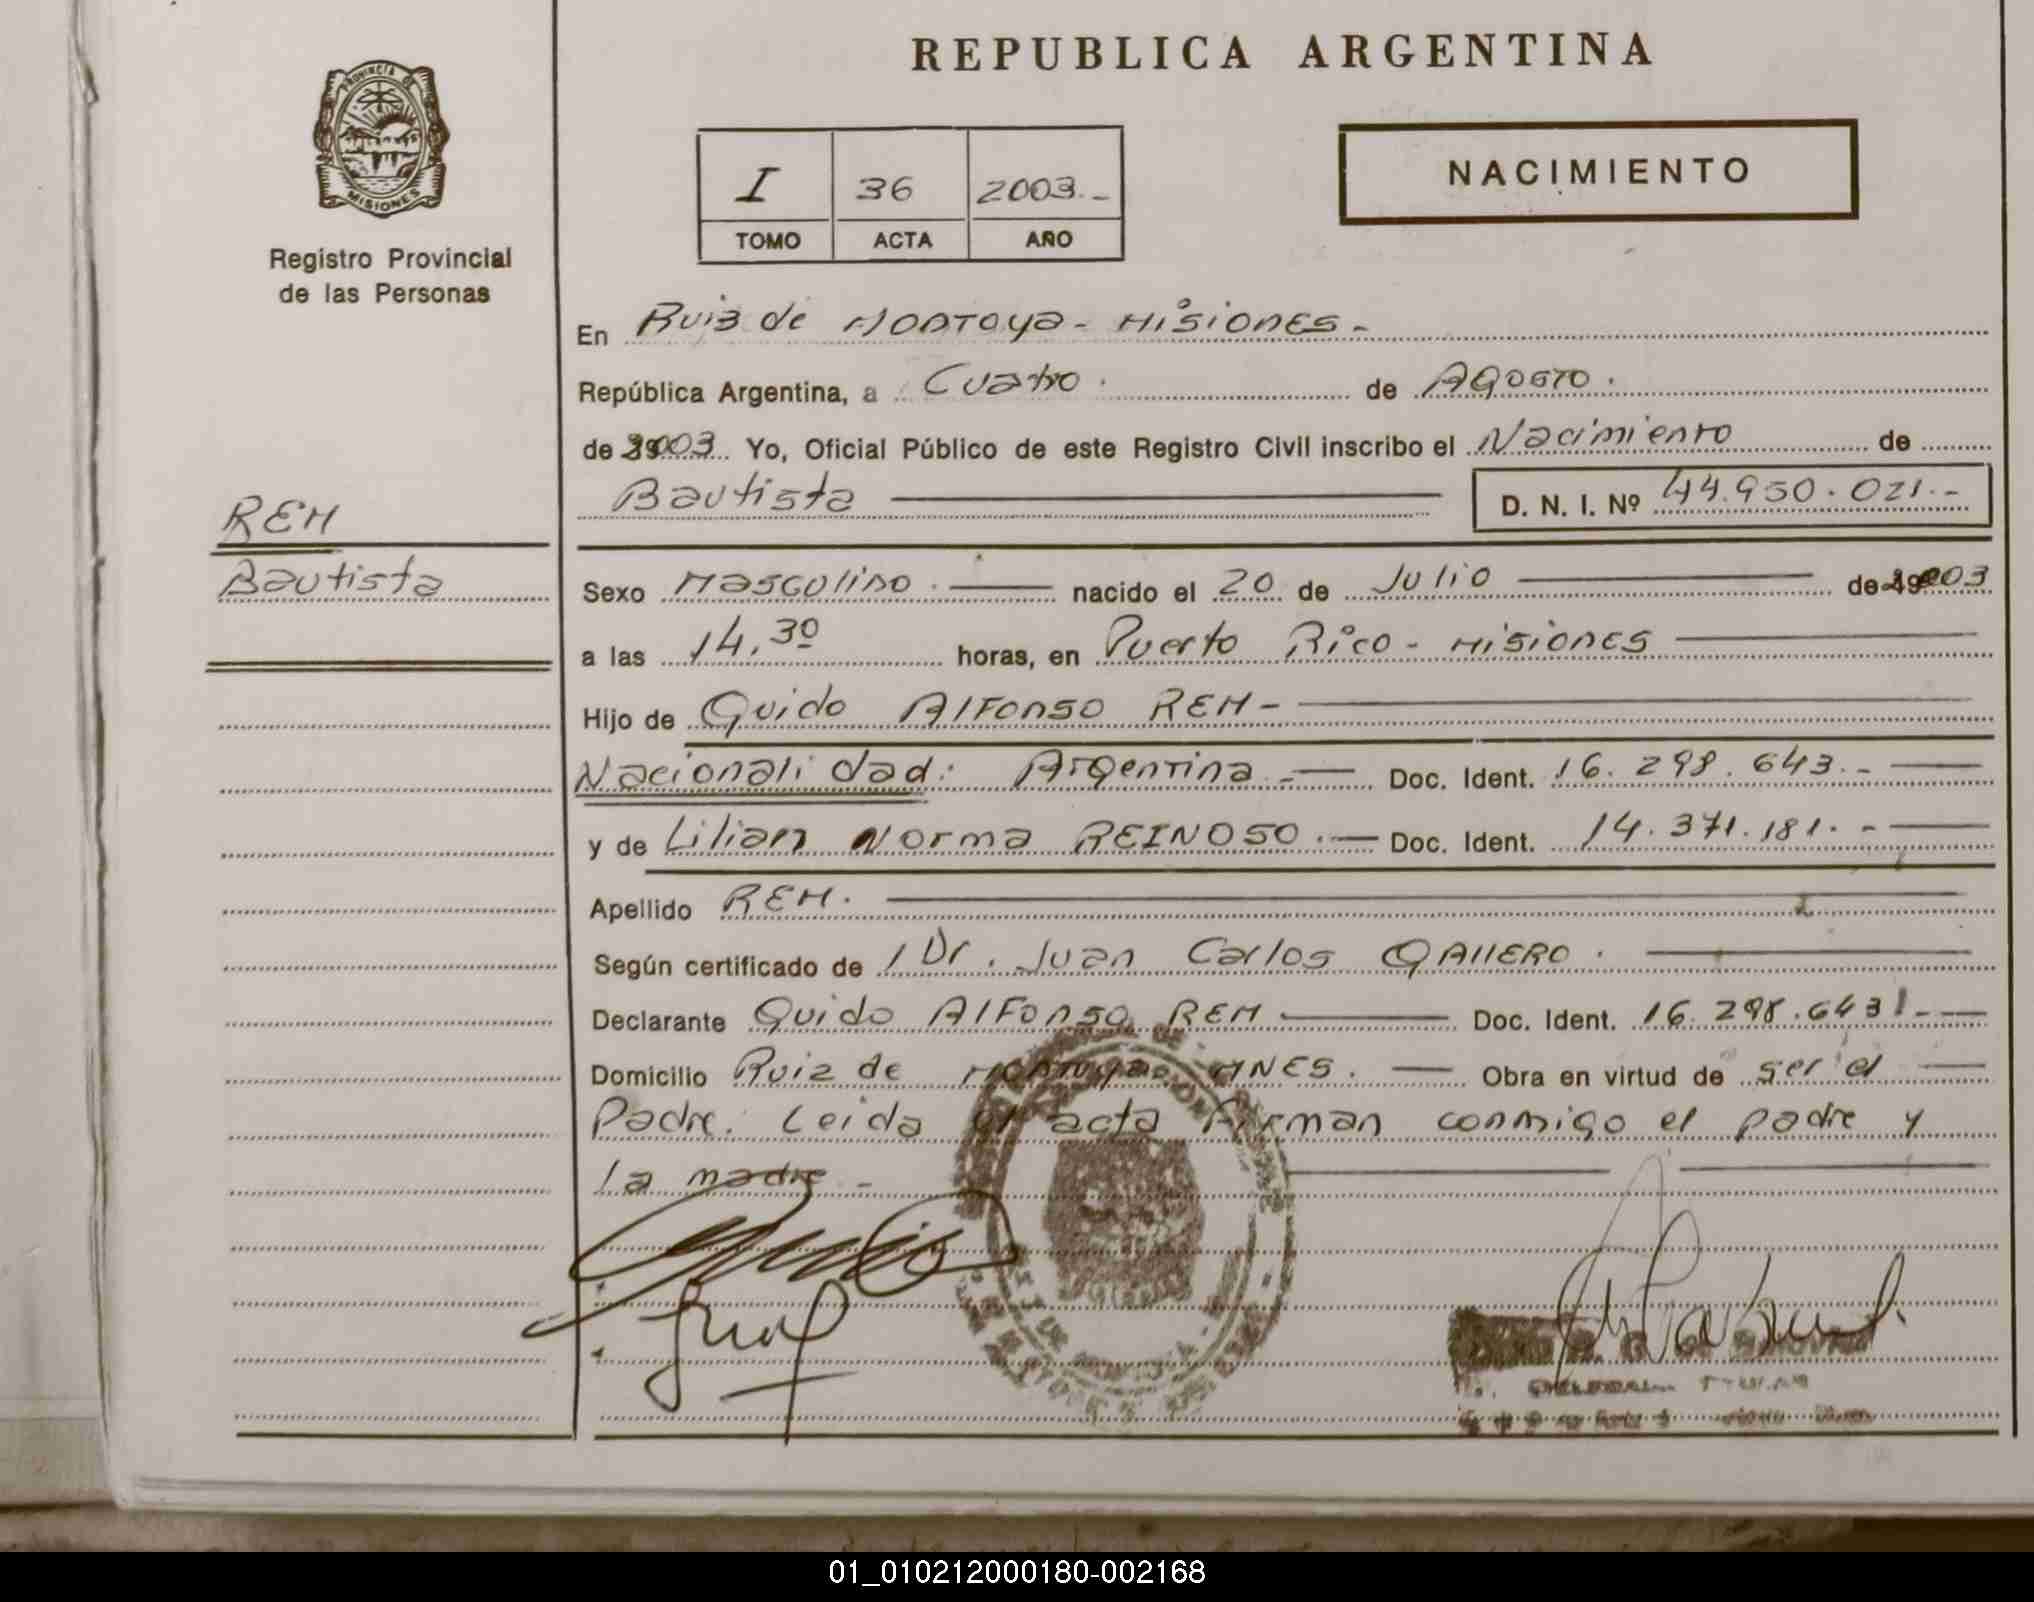 REPUBLICA ARGENTINA
PROVINCIA DE
MISIONES
Registro Provincial
de las Personas
I 36 2003.-
TOMO ACTA AÑO
NACIMIENTO
En Ruiz de Montoya - Misiones -
República Argentina, a Cuatro . de Agosto .
de 2003 Yo, Oficial Público de este Registro Civil inscribo el Nacimiento de
Bautista D. N. I. Nº 44.950.021.-
REH
Bautista
Sexo Masculino . nacido el 20 de Julio de 2003
a las 14,30 horas, en Puerto Rico - Misiones
Hijo de Guido Alfonso REH -
Nacionalidad: Argentina .- Doc. Ident. 16.298.643.-
y de Lilian Norma REINOSO . Doc. Ident. 14.371.181.-
Apellido REH.
Según certificado de / Dr. Juan Carlos GAllERO .
Declarante Guido Alfonso REH Doc. Ident. 16.298.643 .-
Domicilio Ruiz de Montoya MNES. Obra en virtud de ser el
Padre. Leida el acta firman conmigo el padre y
la madre -
01_010212000180-002168